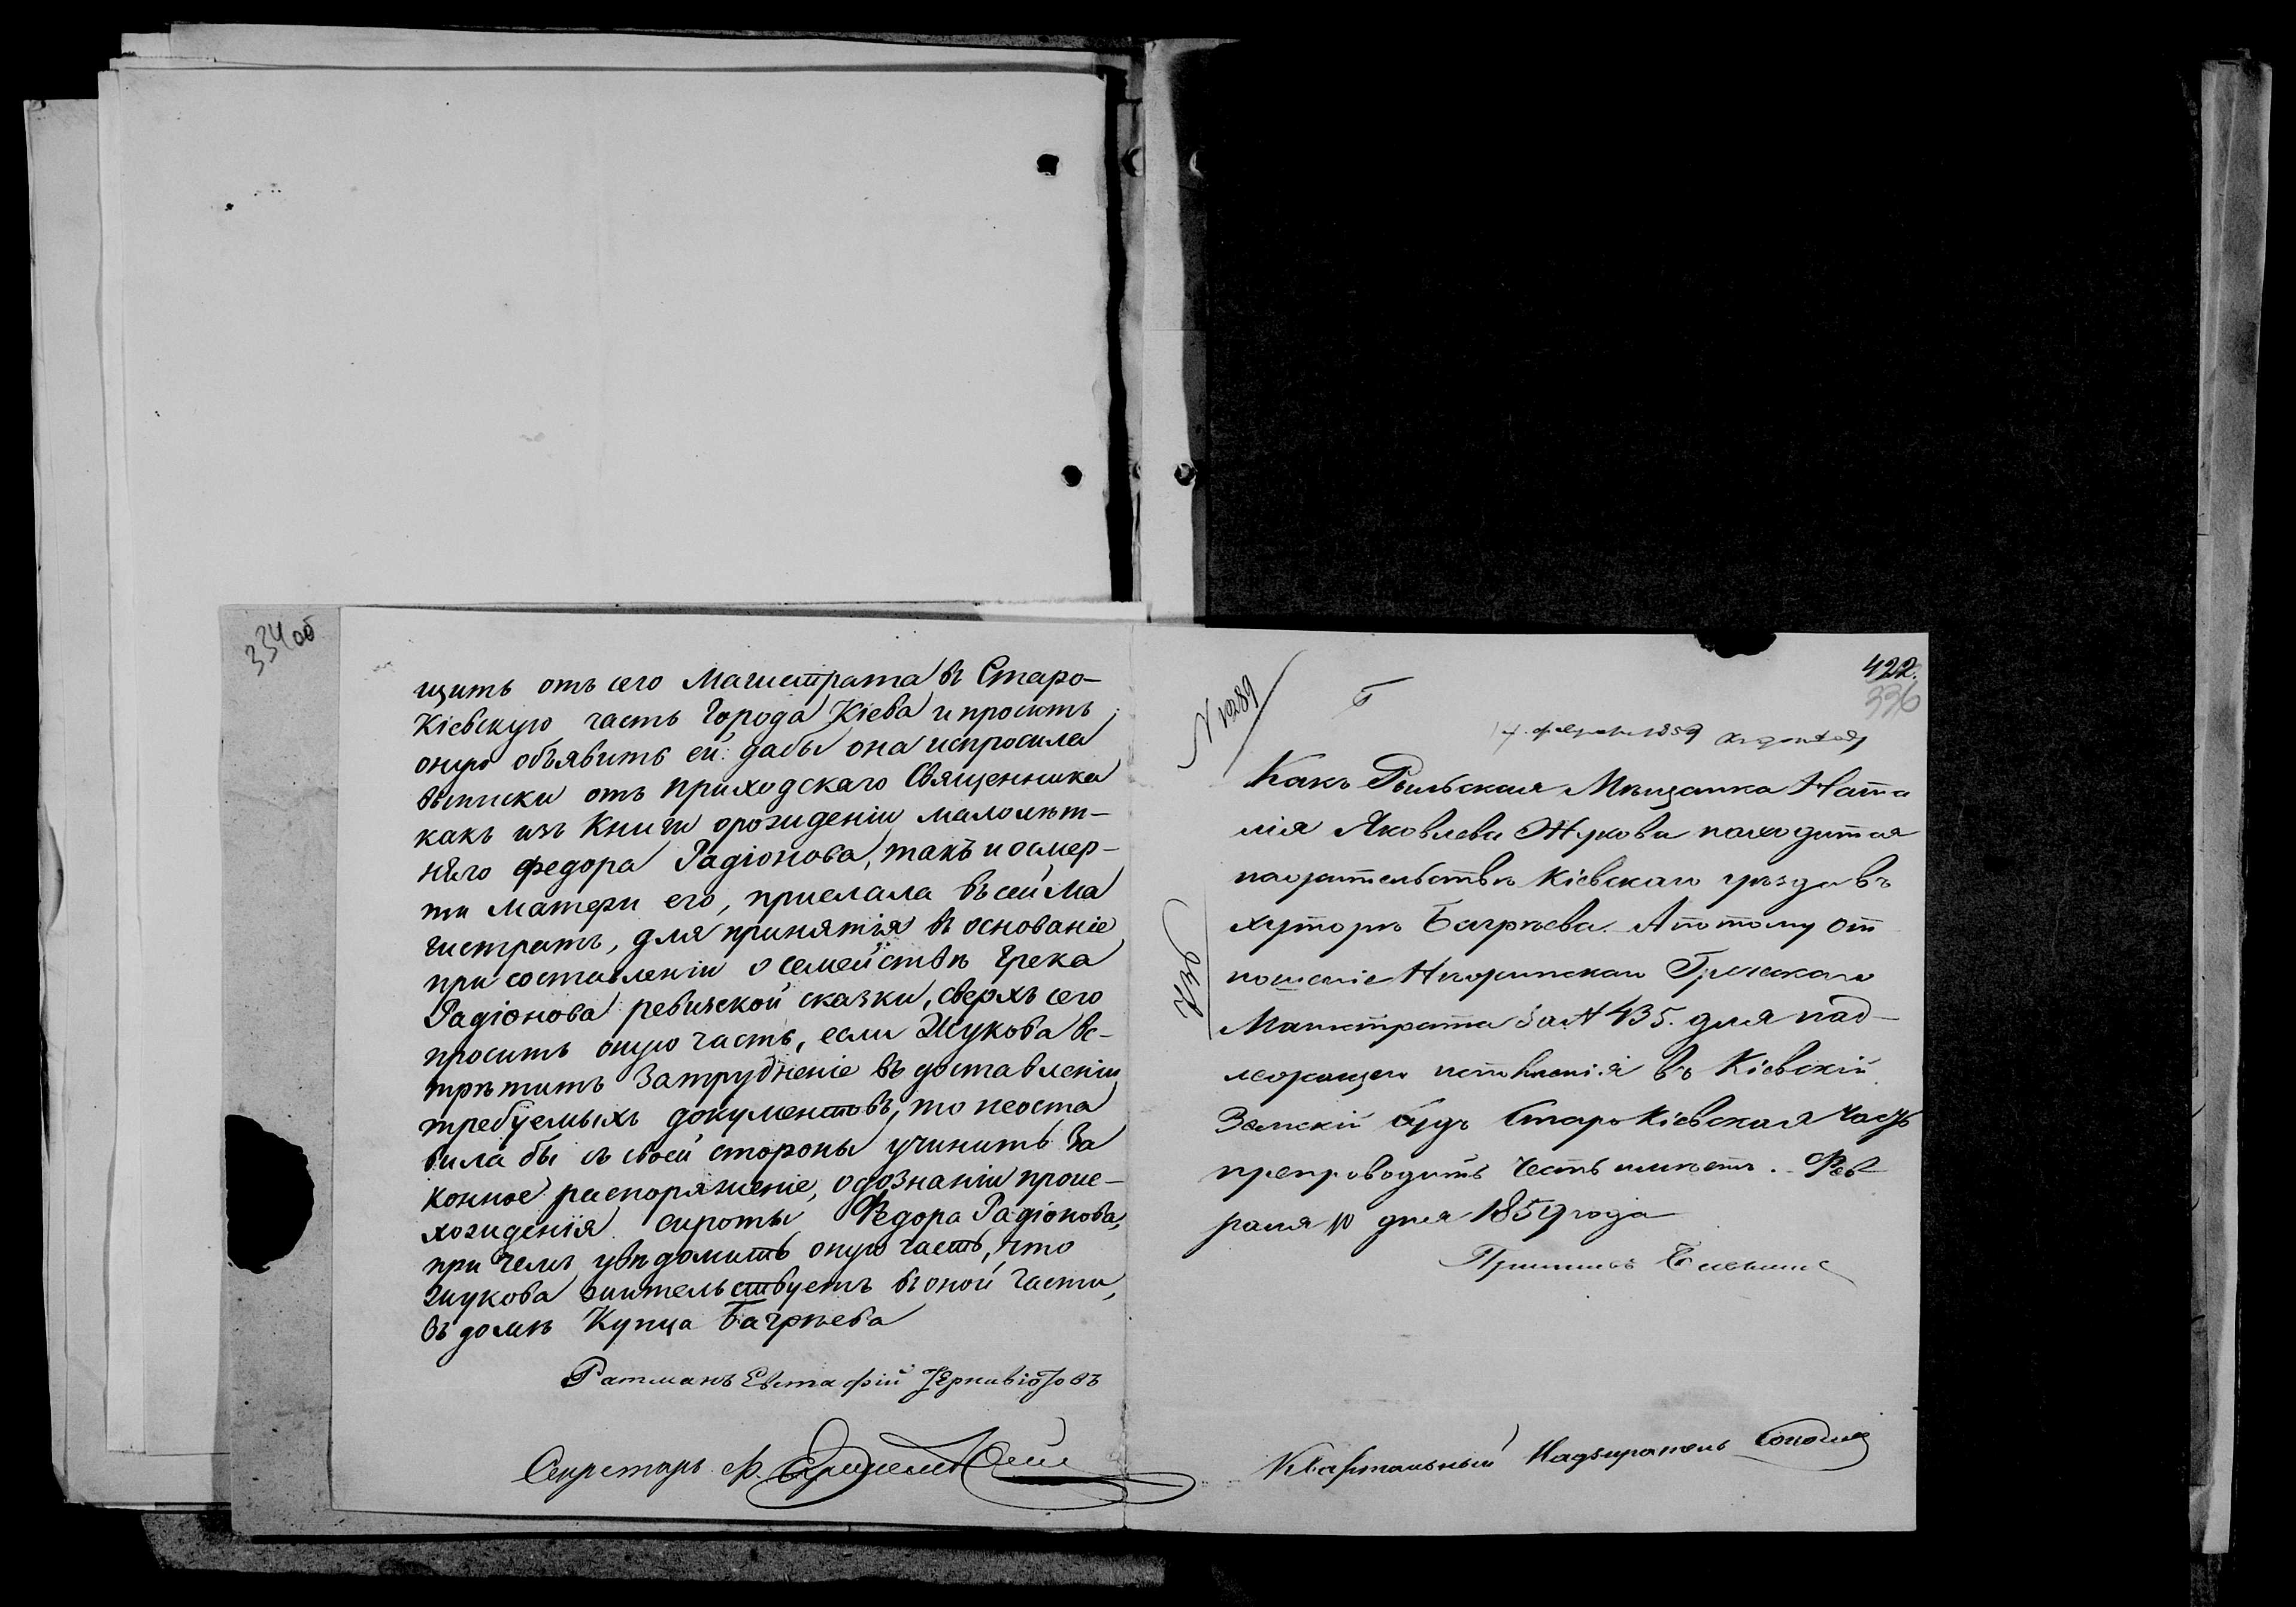 334об
щить отъ сего Магистрата въ Старо-
Кіевскую часть Города Кіева и просить
оную объявить ей: дабы она испросила
выписки отъ приходскаго Священника
какъ изъ Книги орожденіи малолѣт-
няго Федора Радіонова, такъ и осмер-
ти матери его, прислала въ сей Ма
гистратъ, для принятія въ основаніе
при составленіи о семействѣ Грека
Радіонова ревизской сказки, сверхъ сего
просить оную часть, если Жукова вс-
трѣтитъ затрудненіе въ доставленіи
требуемыхъ документовъ, то неоста
вила бы съ своей стороны учинить за
конное распоряженіе, одознаніи проис-
хожденія сироты Федора Радіонова,
при чемъ увѣдомить оную часть, что
Жукова жительствуетъ въ оной части,
въ домѣ Купца Багрѣева
Ратманъ Евстафій
Секретарь Ф.
422.
336
N 10289
февраля 1859
Какъ Рыльская Мѣщанка Ната
лія Яковлева Жукова находится
нажительствѣ Кіевскаго уѣзда въ
хуторѣ Багрѣева. А потому от
ношеніе Нѣжинскаго Греческаго
Магистрата за N 435. для над-
лежащаго исполненія въ Кіевскій
Земскій Судъ Старокіевская Часть
препроводить честь имѣетъ. Фев
раля 10 дня 1859 года
Приставъ
Квартальный Надзиратель